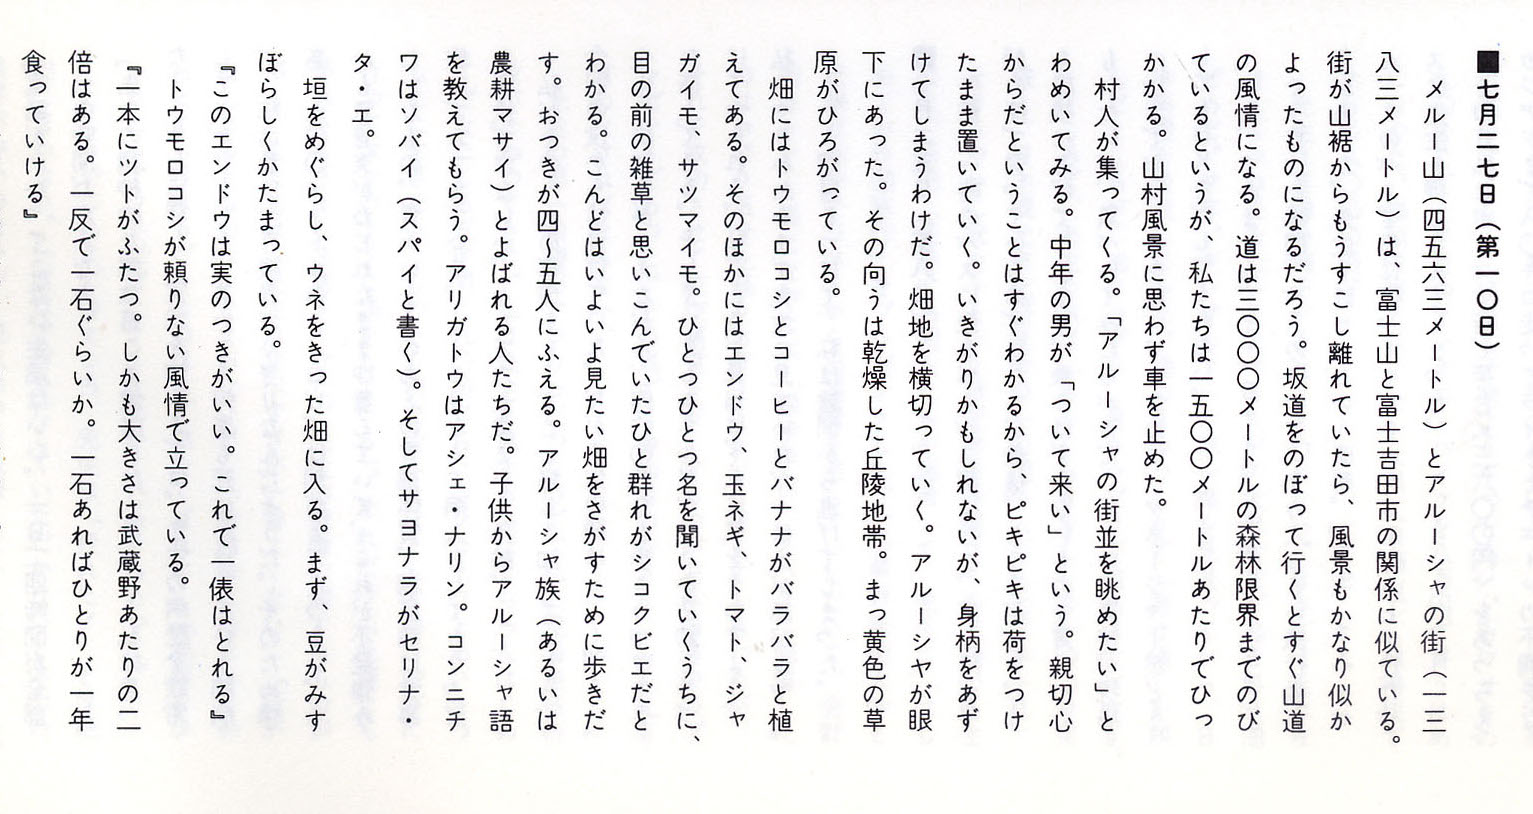 ■七月二七日（第一〇日）
メルー山（四五六三メートル）とアルーシャの街（一三
八三メートル）は、富士山と富士吉田市の関係に似ている。
街が山裾からもうすこし離れていたら、風景もかなり似か
よったものになるだろう。坂道をのぼって行くとすぐ山道
の風情になる。道は三〇〇〇メートルの森林限界までのび
ているというが、私たちは一五〇〇メートルあたりでひっ
かかる。山村風景に思わず車を止めた。
村人が集ってくる。「アルーシャの街並を眺めたい」と
わめいてみる。中年の男が「ついて来い」という。親切心
からだということはすぐわかるから、ピキピキは荷をつけ
たまま置いていく。いきがりかもしれないが、身柄をあず
けてしまうわけだ。畑地を横切っていく。アルーシャが眼
下にあった。その向うは乾燥した丘陵地帯。まっ黄色の草
原がひろがっている。
畑にはトウモロコシとコーヒーとバナナがバラバラと植
えてある。そのほかにはエンドウ、玉ネギ、トマト、ジャ
ガイモ、サツマイモ。ひとつひとつ名を聞いていくうちに、
目の前の雑草と思いこんでいたひと群れがシコクビエだと
わかる。こんどはいよいよ見たい畑をさがすために歩きだ
す。おつきが四〜五人にふえる。アルーシャ族（あるいは
農耕マサイ）とよばれる人たちだ。子供からアルーシャ語
を教えてもらう。アリガトウはアシェ・ナリン。コンニチ
ワはソバイ（スパイと書く）。そしてサヨナラがセリナ・
タ・エ。
垣をめぐらし、ウネをきった畑に入る。まず、豆がみす
ぼらしくかたまっている。
『このエンドウは実のつきがいい。これで一俵はとれる』
トウモロコシが頼りない風情で立っている。
『一本にツトがふたつ。しかも大きさは武蔵野あたりの二
倍はある。一反で一石ぐらいか。一石あればひとりが一年
食っていける』